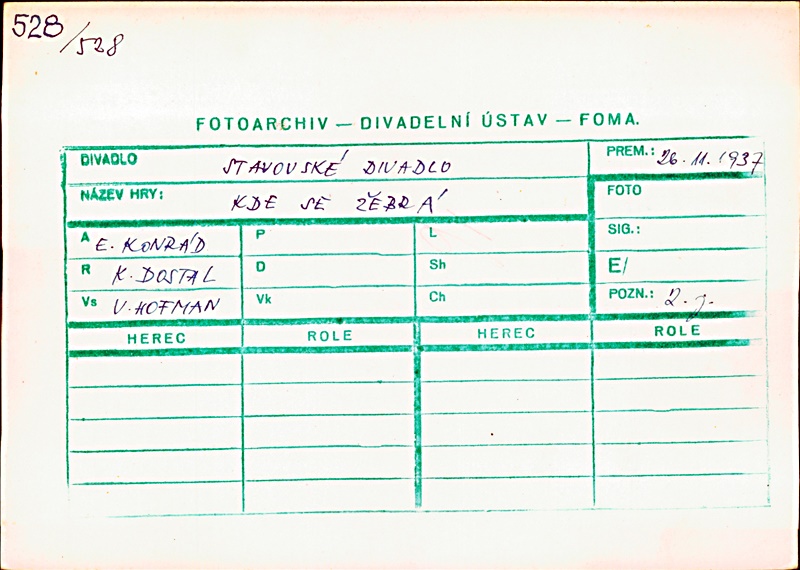 528/528
FOTOARCHIV — DIVADELNÍ ÚSTAV — FOMA.
DIVADLO STAVOVSKÉ DIVADLO PREM.: 26.11.1937
NÁZEV HRY: KDE SE ŽEBRÁ FOTO
A E. KONRÁD P L SIG.:
R K. DOSTAL D Sh E/
Vs V. HOFMAN Vk Ch POZN.: 2. j.
HEREC ROLE HEREC ROLE